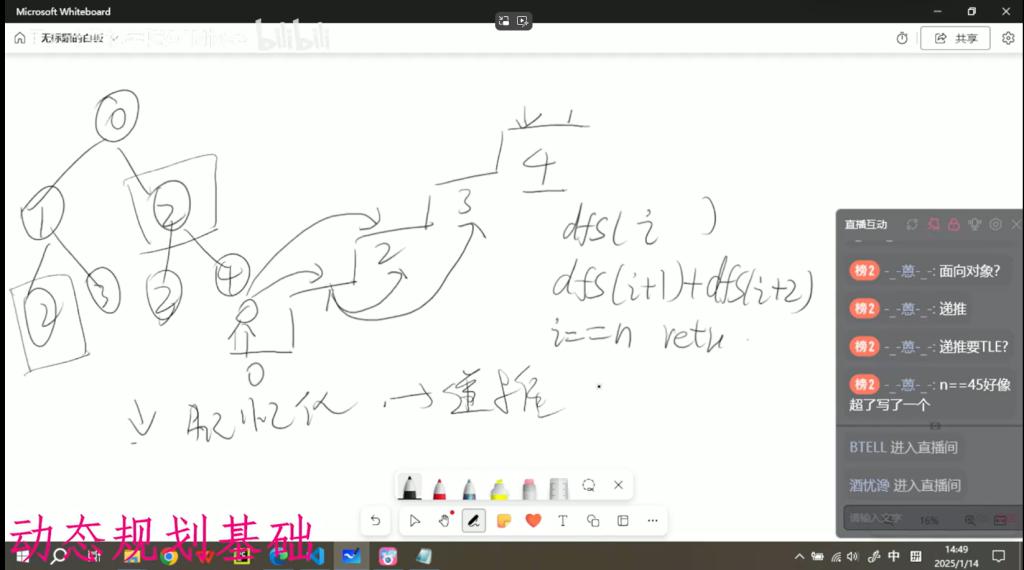 Microsoft Whiteboard
无标题的白板
bilibili
共享
0
1
2
2
3
2
4
0
1
2
3
4
dfs(i )
dfs(i+1)+dfs(i+2)
i==n retu
记忆化 → 递推
直播互动
榜2 -_-蒽_-: 面向对象?
榜2 -_-蒽_-: 递推
榜2 -_-蒽_-: 递推要TLE?
榜2 -_-蒽_-: n==45好像
超了写了一个
BTELL 进入直播间
酒忧谗 进入直播间
请输入文字
16%
动态规划基础
中
14:49
2025/1/14